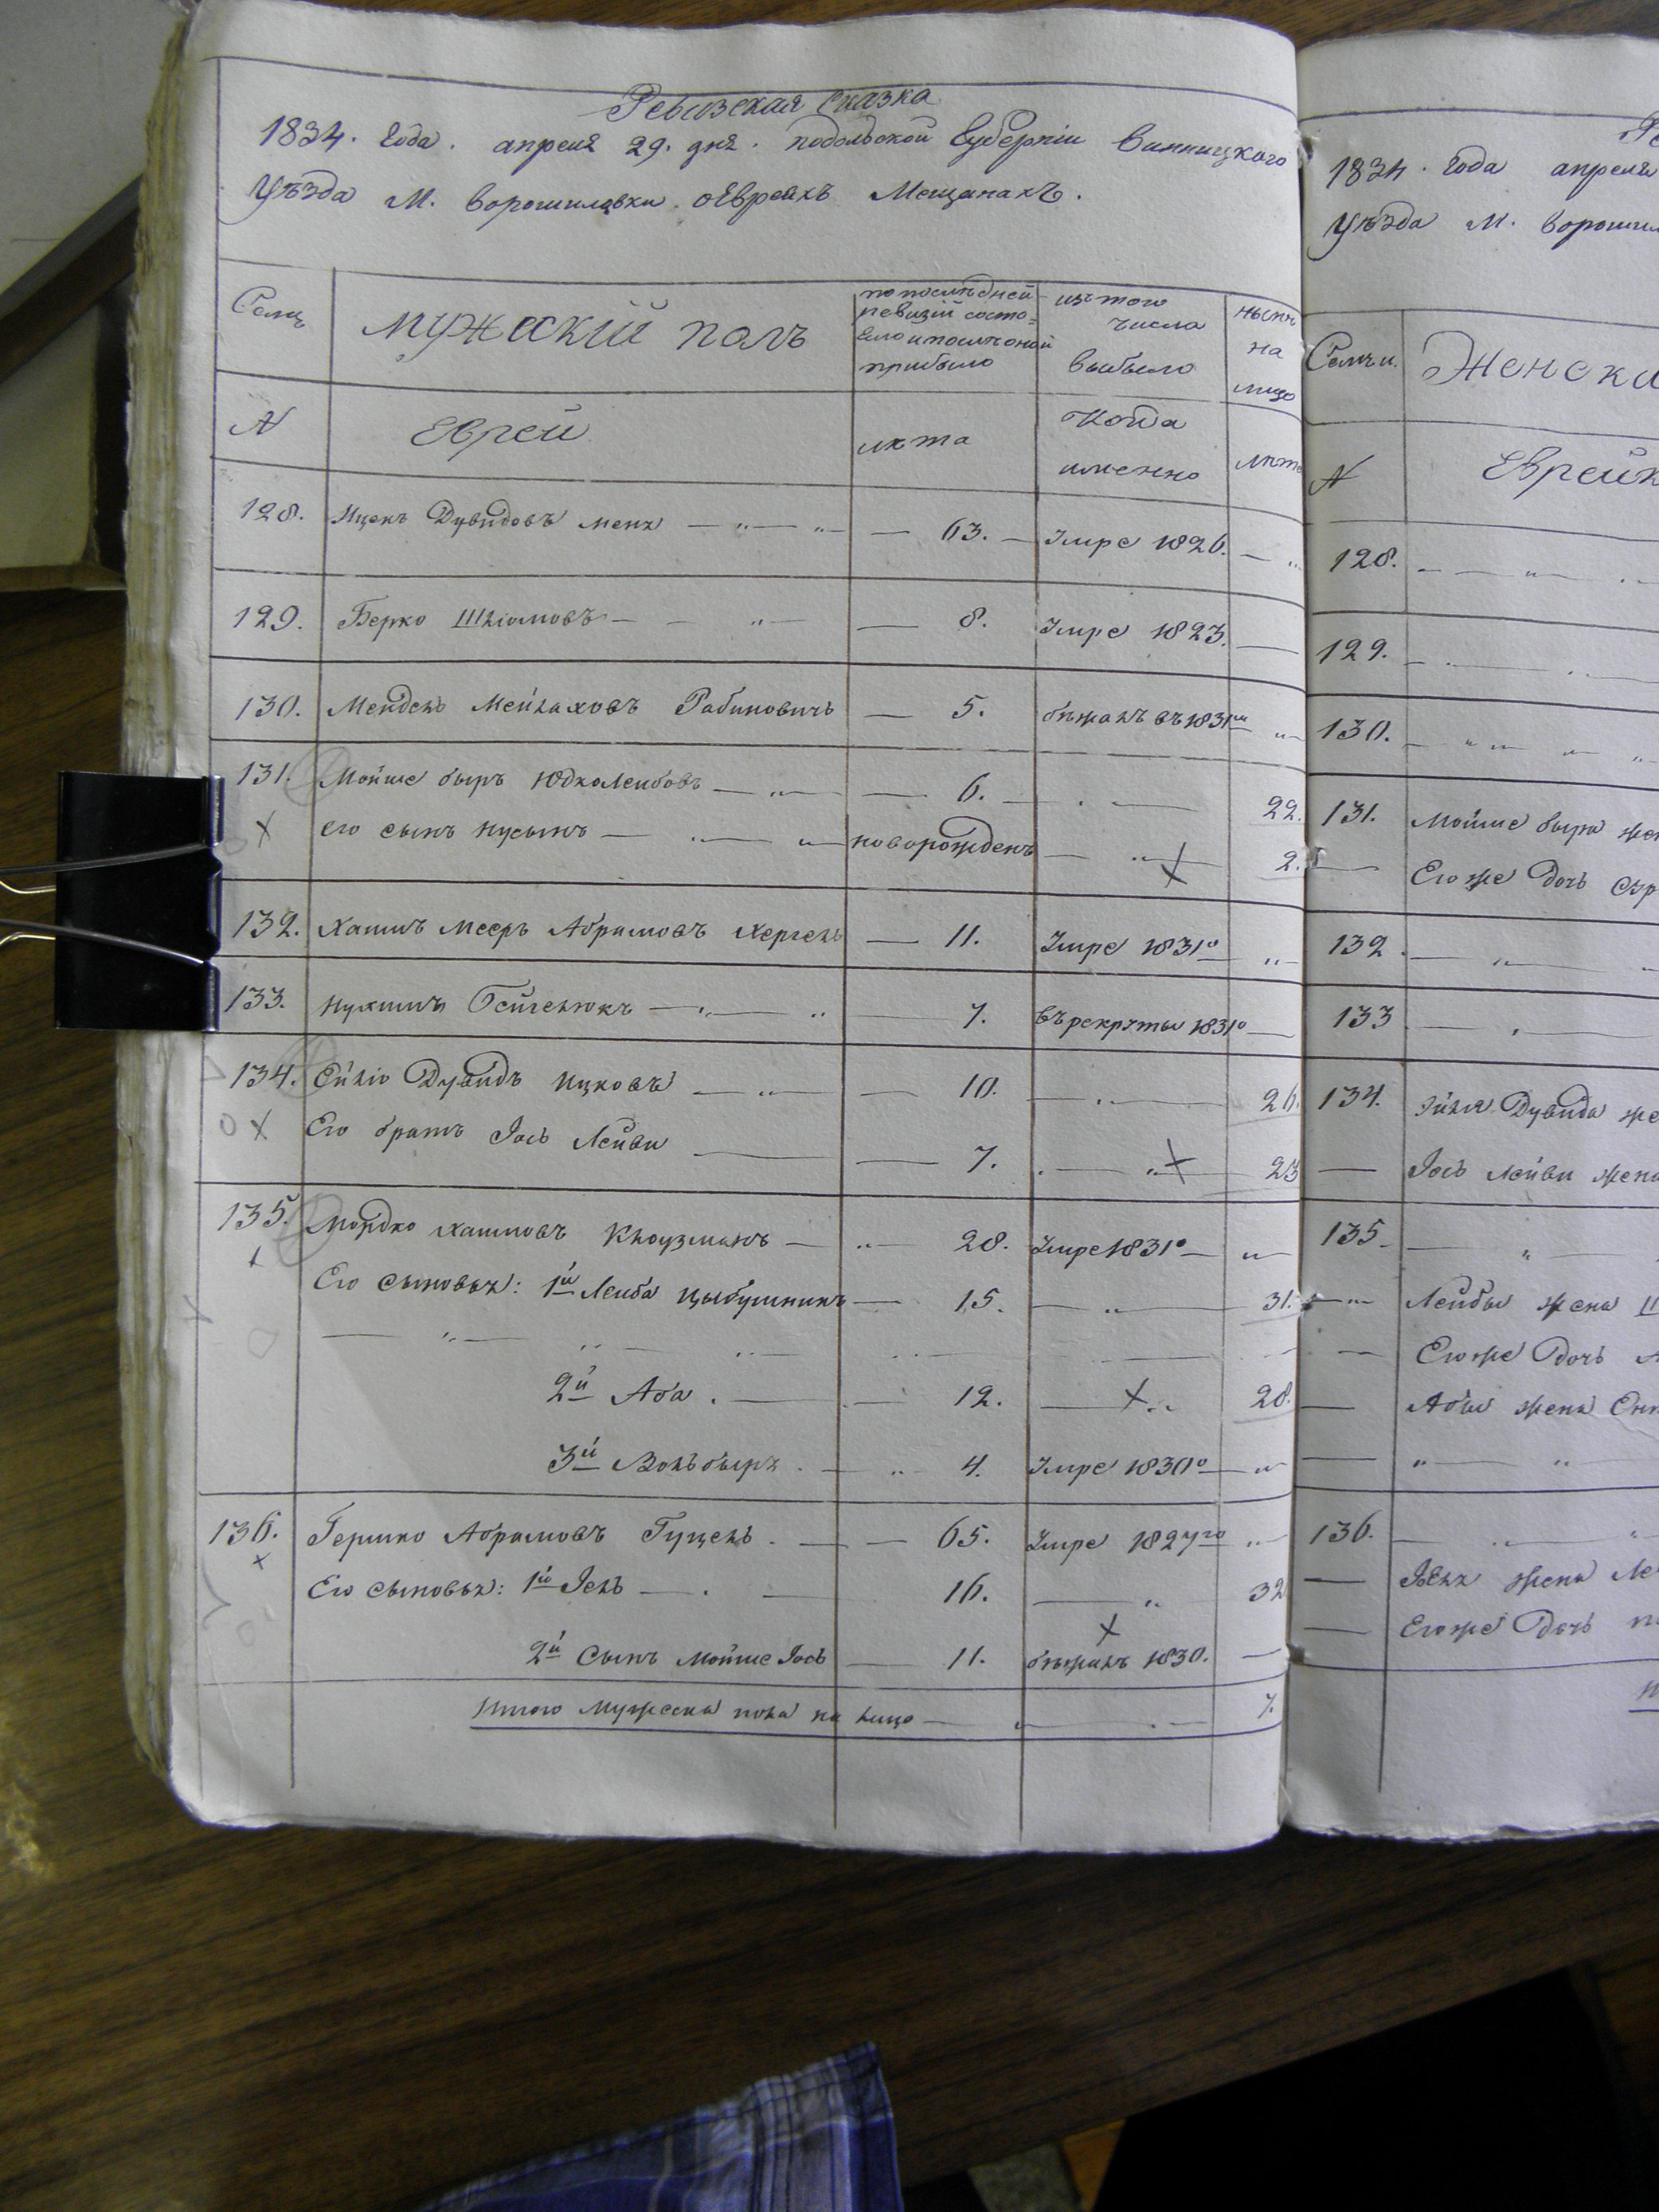 Ревизская Сказка
1834. Года. апреля 29. дня. подольской Губерніи Винницкого
Уѣзда М. Ворошиловки. оЕвреяхъ Мещанахъ.
Семьи
мужеский полъ
попоследней ревизіи состояло ипослѣ оной прибыло
изъ того числа выбыло
нынѣ на лицо
N
Еврей
лѣта
Когда именно
лѣта
128. Ицекъ Дувидовъ — " — " — 63. — Умре 1826. — "
129. Берко Шліомовъ — — " — — 8. Умре 1823. —
130. Мендель Мейлаховъ Рабиновичъ — 5. бѣжалъ въ 1831м "
131. Мойше быръ Юдколейбовъ — " — — 6. — . — 22.
его сынъ Нусынъ — " — " — новорожденъ — " — 2.
132. Хаимъ Мееръ Абрамовъ — 11. Умре 1831о "
133. Нухимъ — " — " — 7. въ рекруты 1831о —
134. Ейлio Дувидъ Ицковъ — " — — 10. — " — 26.
Его братъ Іось Лейви — — 7. . — " — 23
135. Мордко Хаимовъ Клоузманъ — " — 28. Умре 1831о — "
Его сыновья: 1й Лейба — 15. — " — 31.
2й Аба . — . — 12. — " 28.
3й Вольбыръ . — " — 4. Умре 1830о — "
136. Гершко Абрамовъ — — 65. Умре 1827го "
Его сыновья: 1й — . — 16. — " 32
2й Сынъ Мойше Іось — 11. бѣжалъ 1830. —
Итого Мужеска пола на лицо — " — . — 7.
1834. Года апреля
Уѣзда М.
Семьи.
Женски
N
Еврейк
128. — — " — . —
129. — . — . —
130. — " " — " — "
131. Мойше быра
— Его же дочь
132. — " —
133 — . —
134. Эйля Дувида же
— Іось Лейви жена
135 — "
— " — Лейбы жена
— Его же дочь
— Абы жена
— " — "
136. — " — "
— жена
— Его же дочь